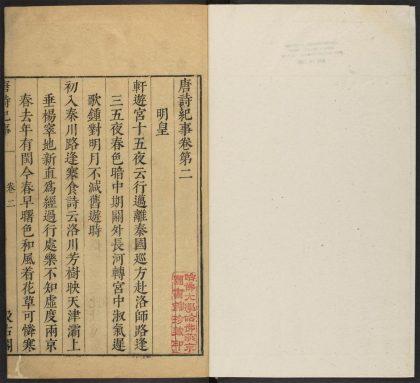 唐詩紀事卷第二
明皇
軒遊宮十五夜云行邁離秦國巡方赴洛師路逢
三五夜春色暗中期關外長河轉宮中淑氣遲
歌鍾對明月不減舊遊時
初入秦川路逢寒食詩云洛川芳樹映天津灞上
垂楊窣地新直為經過行處樂不知虛度兩京
春去年有閏今春早曙色和風着花草可憐寒
唐詩紀事
卷二
汲古閣
哈佛大學哈佛燕京
圖書館珍藏印